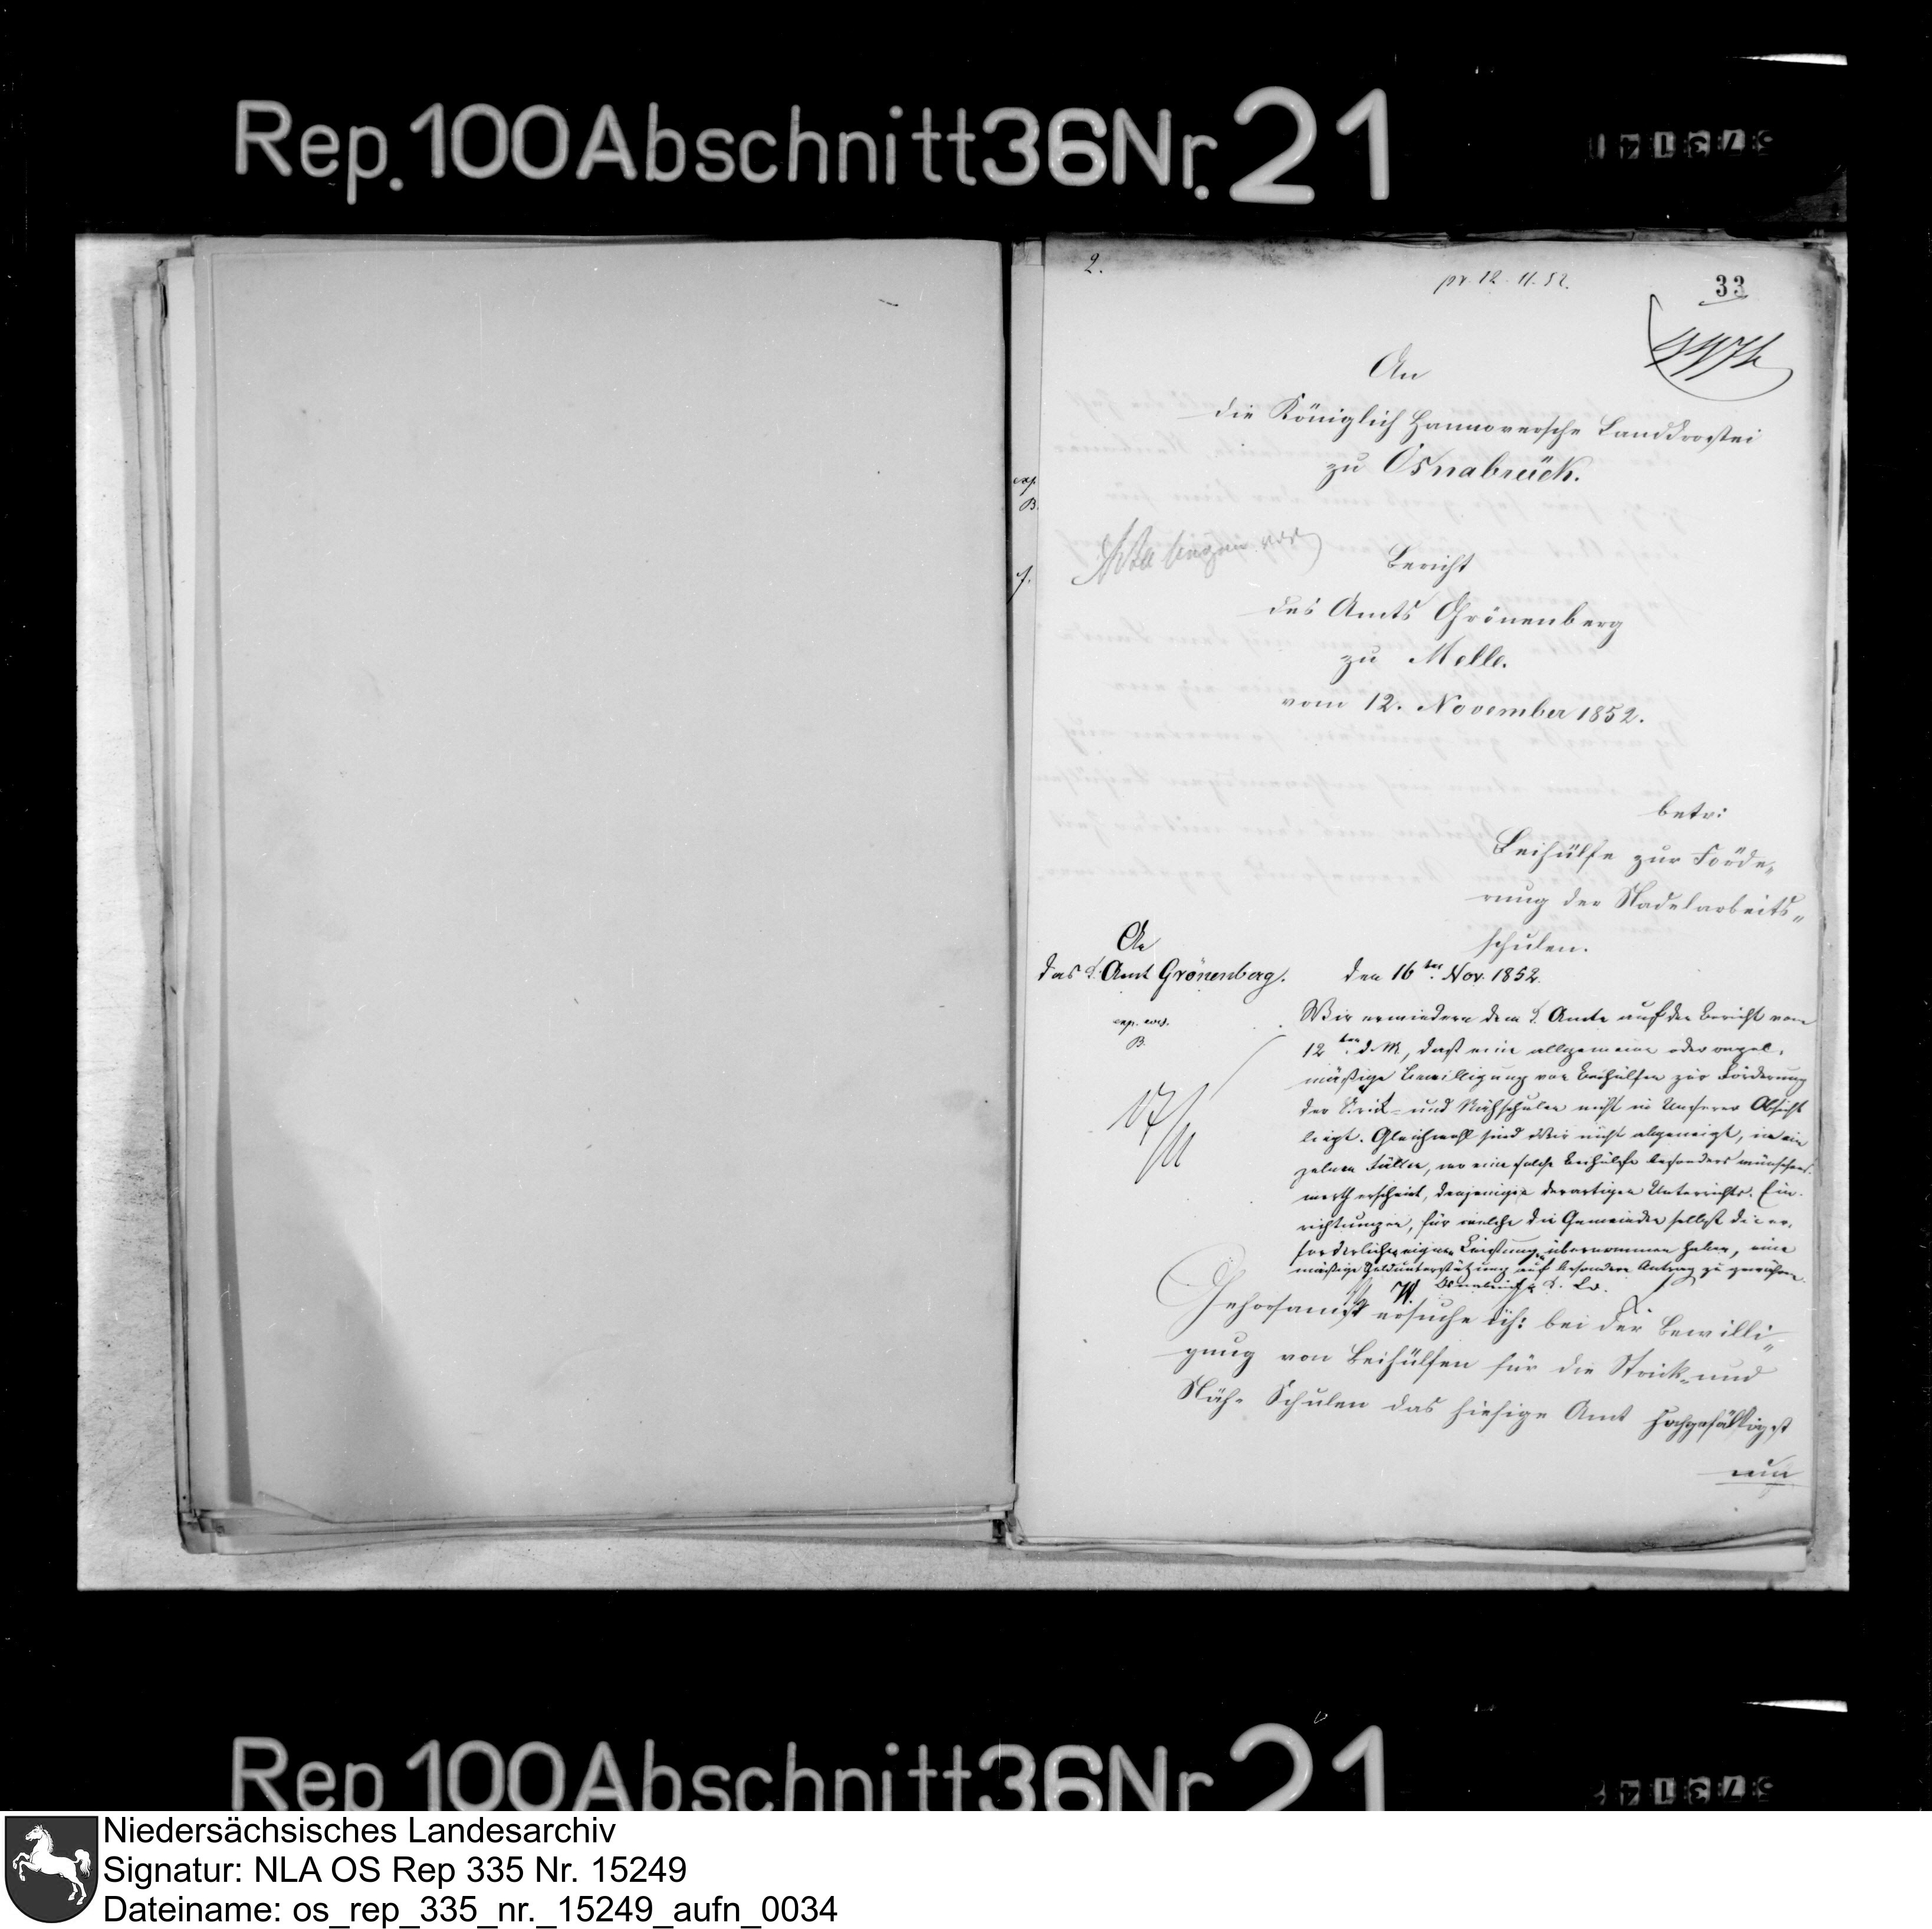 Rep. 100 Abschnitt 36 Nr. 21
2.
pr. 12. 11. 52.
33
An
die Königlich Hannoversche Landdrostei
zu Osnabrück.
Bericht
des Amts Grönenberg
zu Melle.
vom 12. November 1852.
betr:
Beihülfe zur Förde„
rung der Nadelarbeits„
schulen.
An
das K. Amt Grönenberg.
exp. eod.
B.
17/11
den 16ten Nov. 1852.
Wir erwiedern dem K. Amte auf den Bericht vom
12ten d. M, daß eine allgemeine oder regel-
mäßige Bewilligung von Beihülfen zur Förderung
der Strick- und Nähschulen nicht in Unserer Absicht
liegt. Gleichwohl sind Wir nicht abgeneigt, in ein
zelnen Fällen, wo eine solche Beihülfe besonders wünschens-
werth erscheint, denjenigen derartigen Unterrichts-Ein-
richtungen, für welche die Gemeinden selbst die er-
forderlichen eignen Leistungen übernommen haben, eine
mäßige Geldunterstützung auf besondern Antrag zu gewähren.
Osnabrück K. Ld.
Gehorsamst ersuche ich: bei der Bewilli„
gung von Beihülfen für die Strick- und
Näh- Schulen das hiesige Amt hochgefälligst
exp.
B.
Rep 100 Abschnitt 36 Nr 21
Niedersächsisches Landesarchiv
Signatur: NLA OS Rep 335 Nr. 15249
Dateiname: os_rep_335_nr._15249_aufn_0034